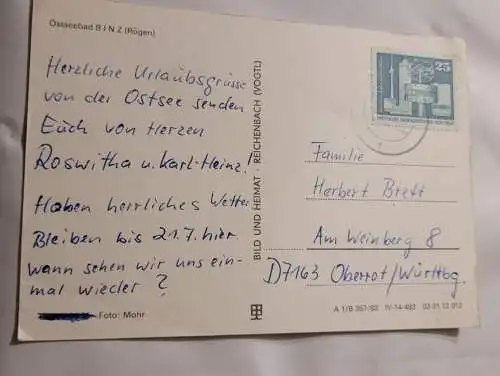 Ostseebad B I N Z (Rügen)
Herzliche Urlaubsgrüsse
von der Ostsee senden
Euch von Herzen
Roswitha u. Karl-Heinz!
Haben herrliches Wetter
Bleiben bis 21.7. hier.
wann sehen wir uns ein-
mal wieder?
Foto: Mohr
BILD UND HEIMAT · REICHENBACH (VOGTL)
25
Familie
Herbert Brett
Am Weinberg 8
D7163 Oberrot/Württbg.
A 1/B 357/83 IV-14-483 03 01 12 012